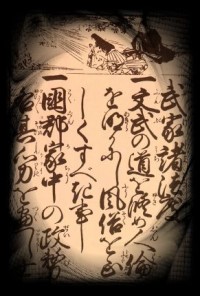 武家諸法度
一文武の道を修め人倫
を明にし風俗を正
しくすべき事
一國郡家中の政務
各其心力を盡し